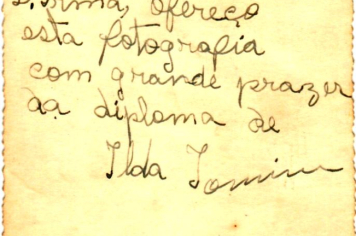 irmã, ofereço
esta fotografia
com grande prazer
da diploma de
Ilda